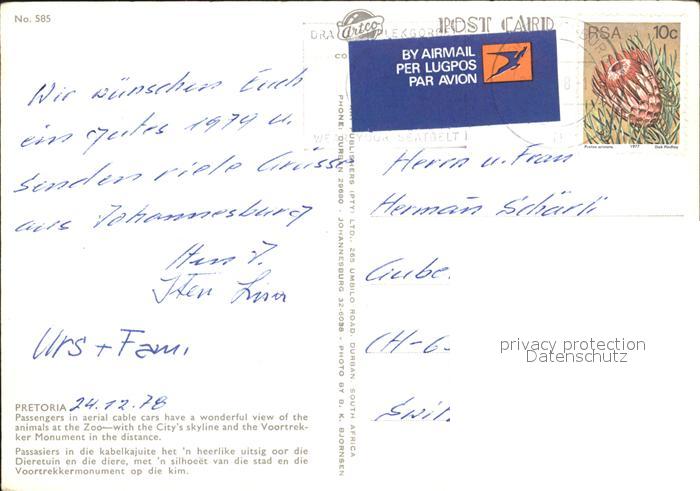 No. 585
Artco
POST CARD
BY AIRMAIL
PER LUGPOS
PAR AVION
RSA 10c
1977 Dick Findlay
WEAR YOUR SEATBELT
Wir wünschen Euch
ein gutes 1979 u.
senden viele Grüsse
aus Johannesburg
Urs + Fam.
Herrn u. Frau
Herman Schärli
CH-6
privacy protection
Datenschutz
PUBLISHERS (PTY) LTD., 265 UMBILO ROAD, DURBAN, SOUTH AFRICA
PHONE: DURBAN 29680 - JOHANNESBURG 32-6038 - PHOTO BY B. K. BJORNSEN
PRETORIA 24.12.78
Passengers in aerial cable cars have a wonderful view of the
animals at the Zoo—with the City's skyline and the Voortrek-
ker Monument in the distance.
Passasiers in die kabelkajuite het 'n heerlike uitsig oor die
Dieretuin en die diere, met 'n silhoeët van die stad en die
Voortrekkermonument op die kim.